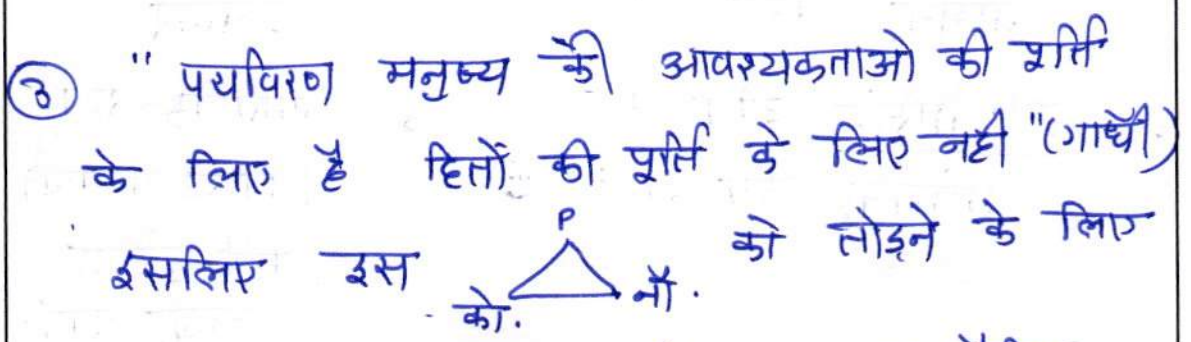 ③ " पर्यावरण मनुष्य की आवश्यकताओ की पूर्ति
के लिए है हितों की पूर्ति के लिए नही " (गाधी)
इसलिए इस को. P नौ. को तोड़ने के लिए